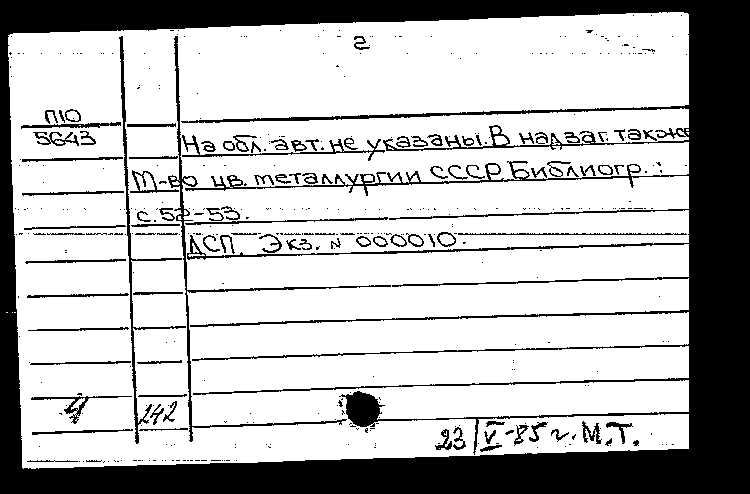 2
П10
5643
На обл. авт. не указаны. В надзаг. также
М-во цв. металлургии СССР. Библиогр.:
с. 52-53.
ДСП. Экз. N 000010.
4 242
23/V-85 г. М.Т.